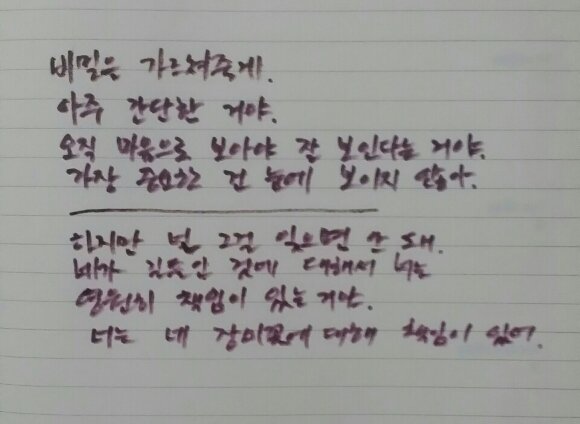 비밀은 가르쳐줄게.
아주 간단한 거야.
오직 마음으로 보아야 잘 보인다는 거야.
가장 중요한 건 눈에 보이지 않아.
하지만 넌 그걸 잊으면 안 돼.
네가 길들인 것에 대해서 너는
영원히 책임이 있는거야.
너는 네 장미꽃에 대해 책임이 있어.